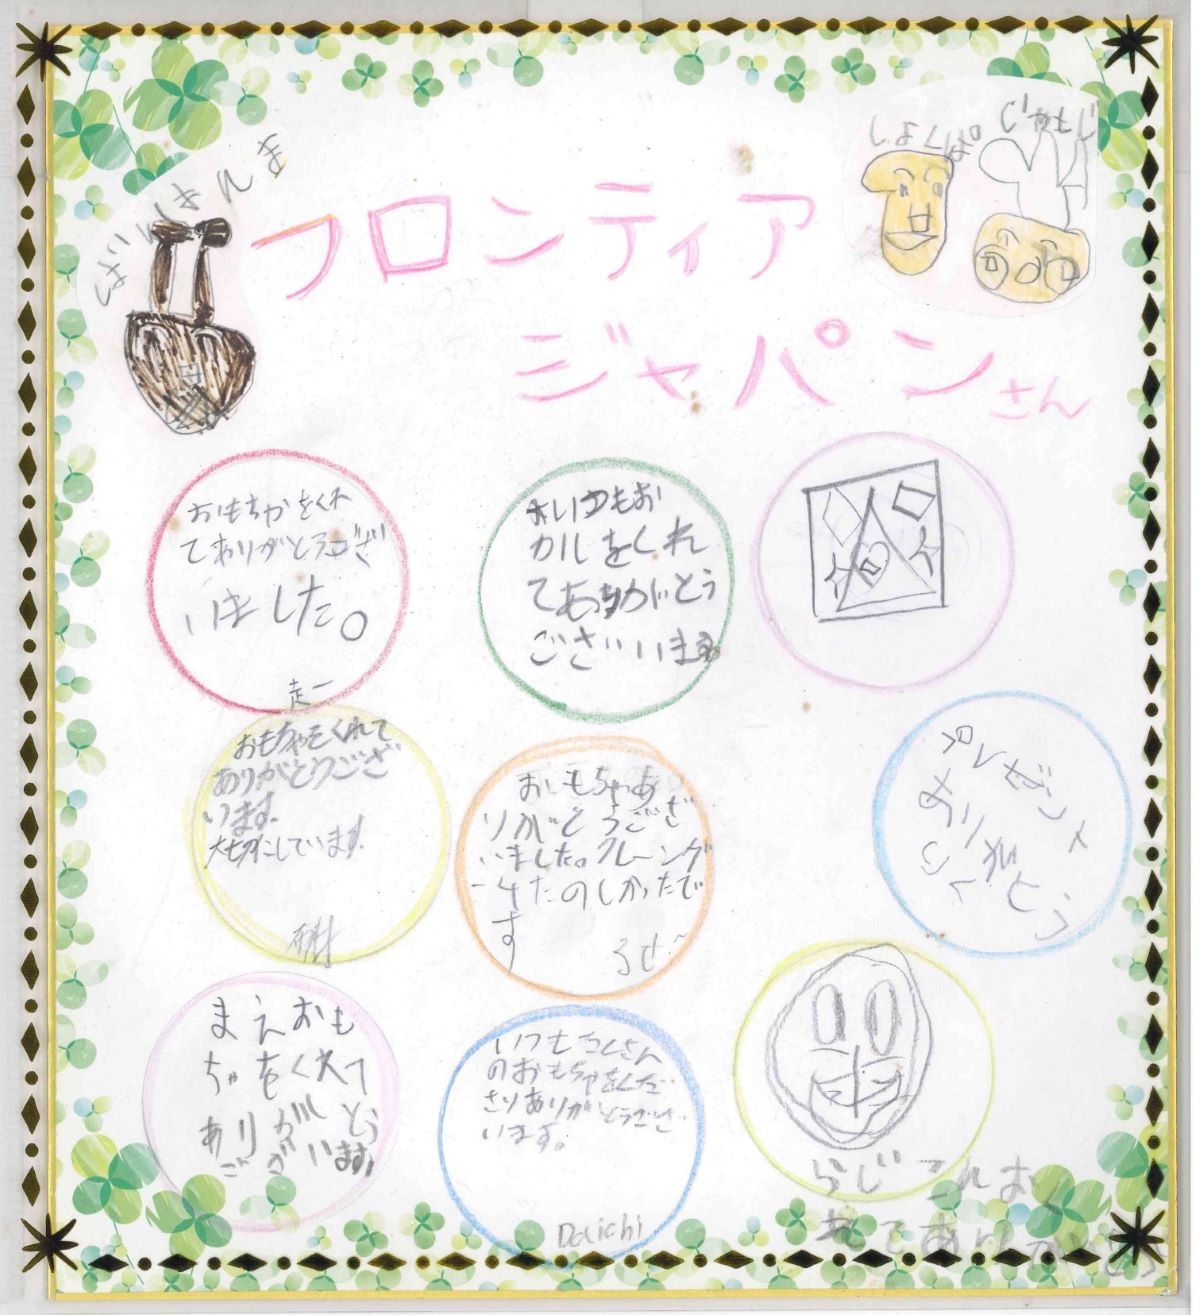 ばいきんま
しょくぱん
じゃむおじ
フロンティア
ジャパンさん
おもちゃをくれ
てありがとうござ
いました。
走一
いつもお
カルをくれ
てありがとう
ございます
おもちゃをくれて
ありがとうござ
います。
大切にしています。
おもちゃあ
りがとうござ
いました。クレーンゲ
ームたのしかったで
す
るせ
プレゼント
ありがとう
まえおも
ちゃをくれて
ありがとう
ございます
いつもたくさん
のおもちゃをくだ
さりありがとうござ
います。
Daiichi
らじこんおく
れてありがとう